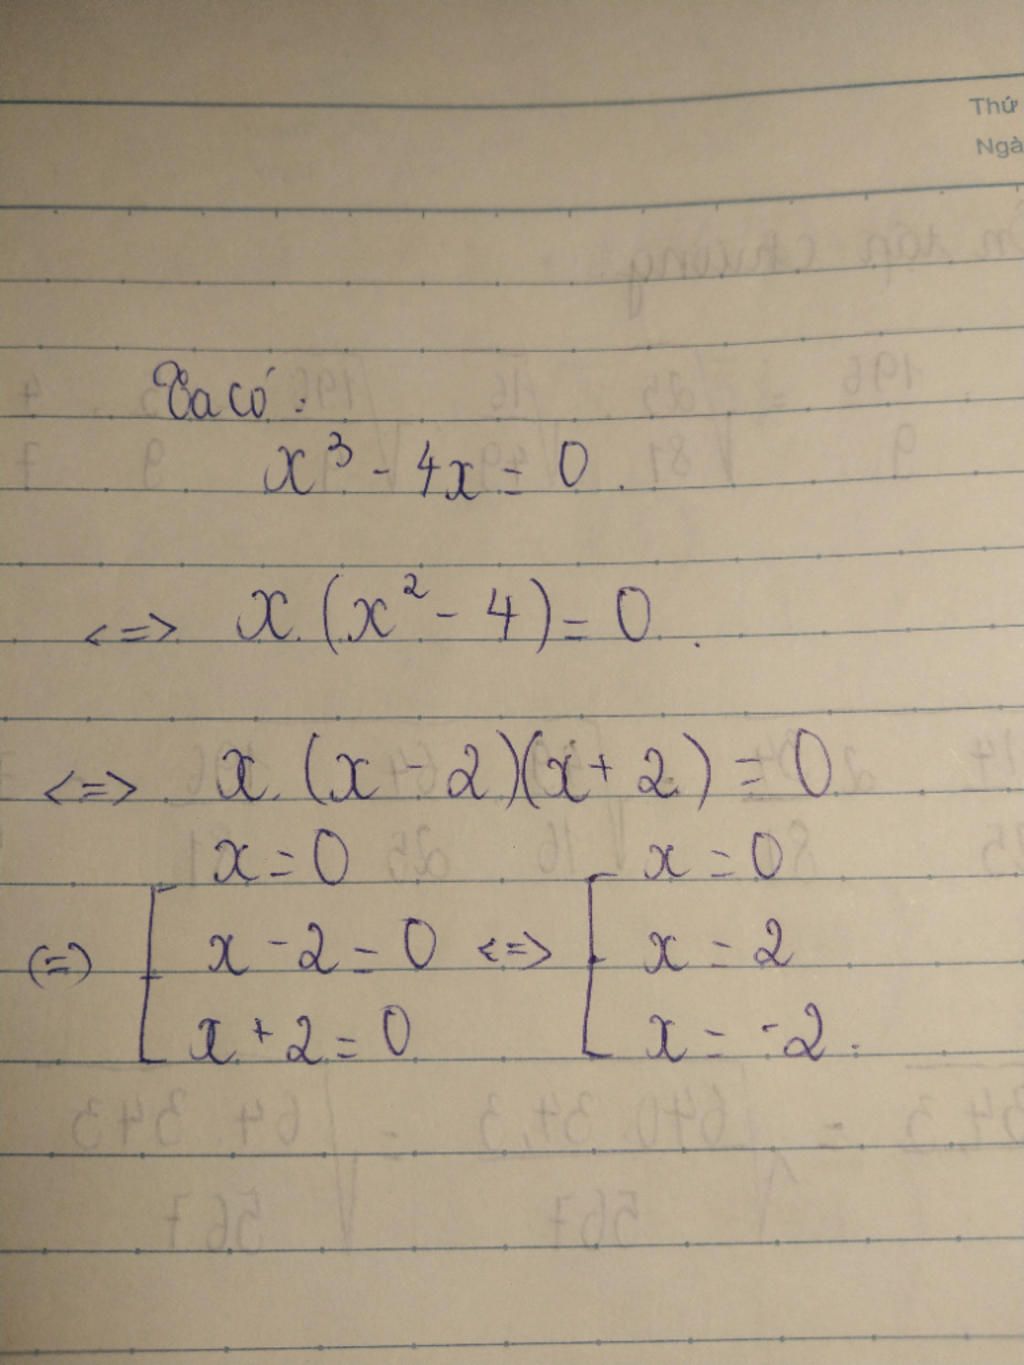 Thứ
Ngà
Ta có:
x³ - 4x = 0.
<=> x.(x² - 4) = 0.
<=> x.(x - 2)(x + 2) = 0
x = 0 x = 0
(=) x - 2 = 0 <=> x = 2
x + 2 = 0 x = -2.